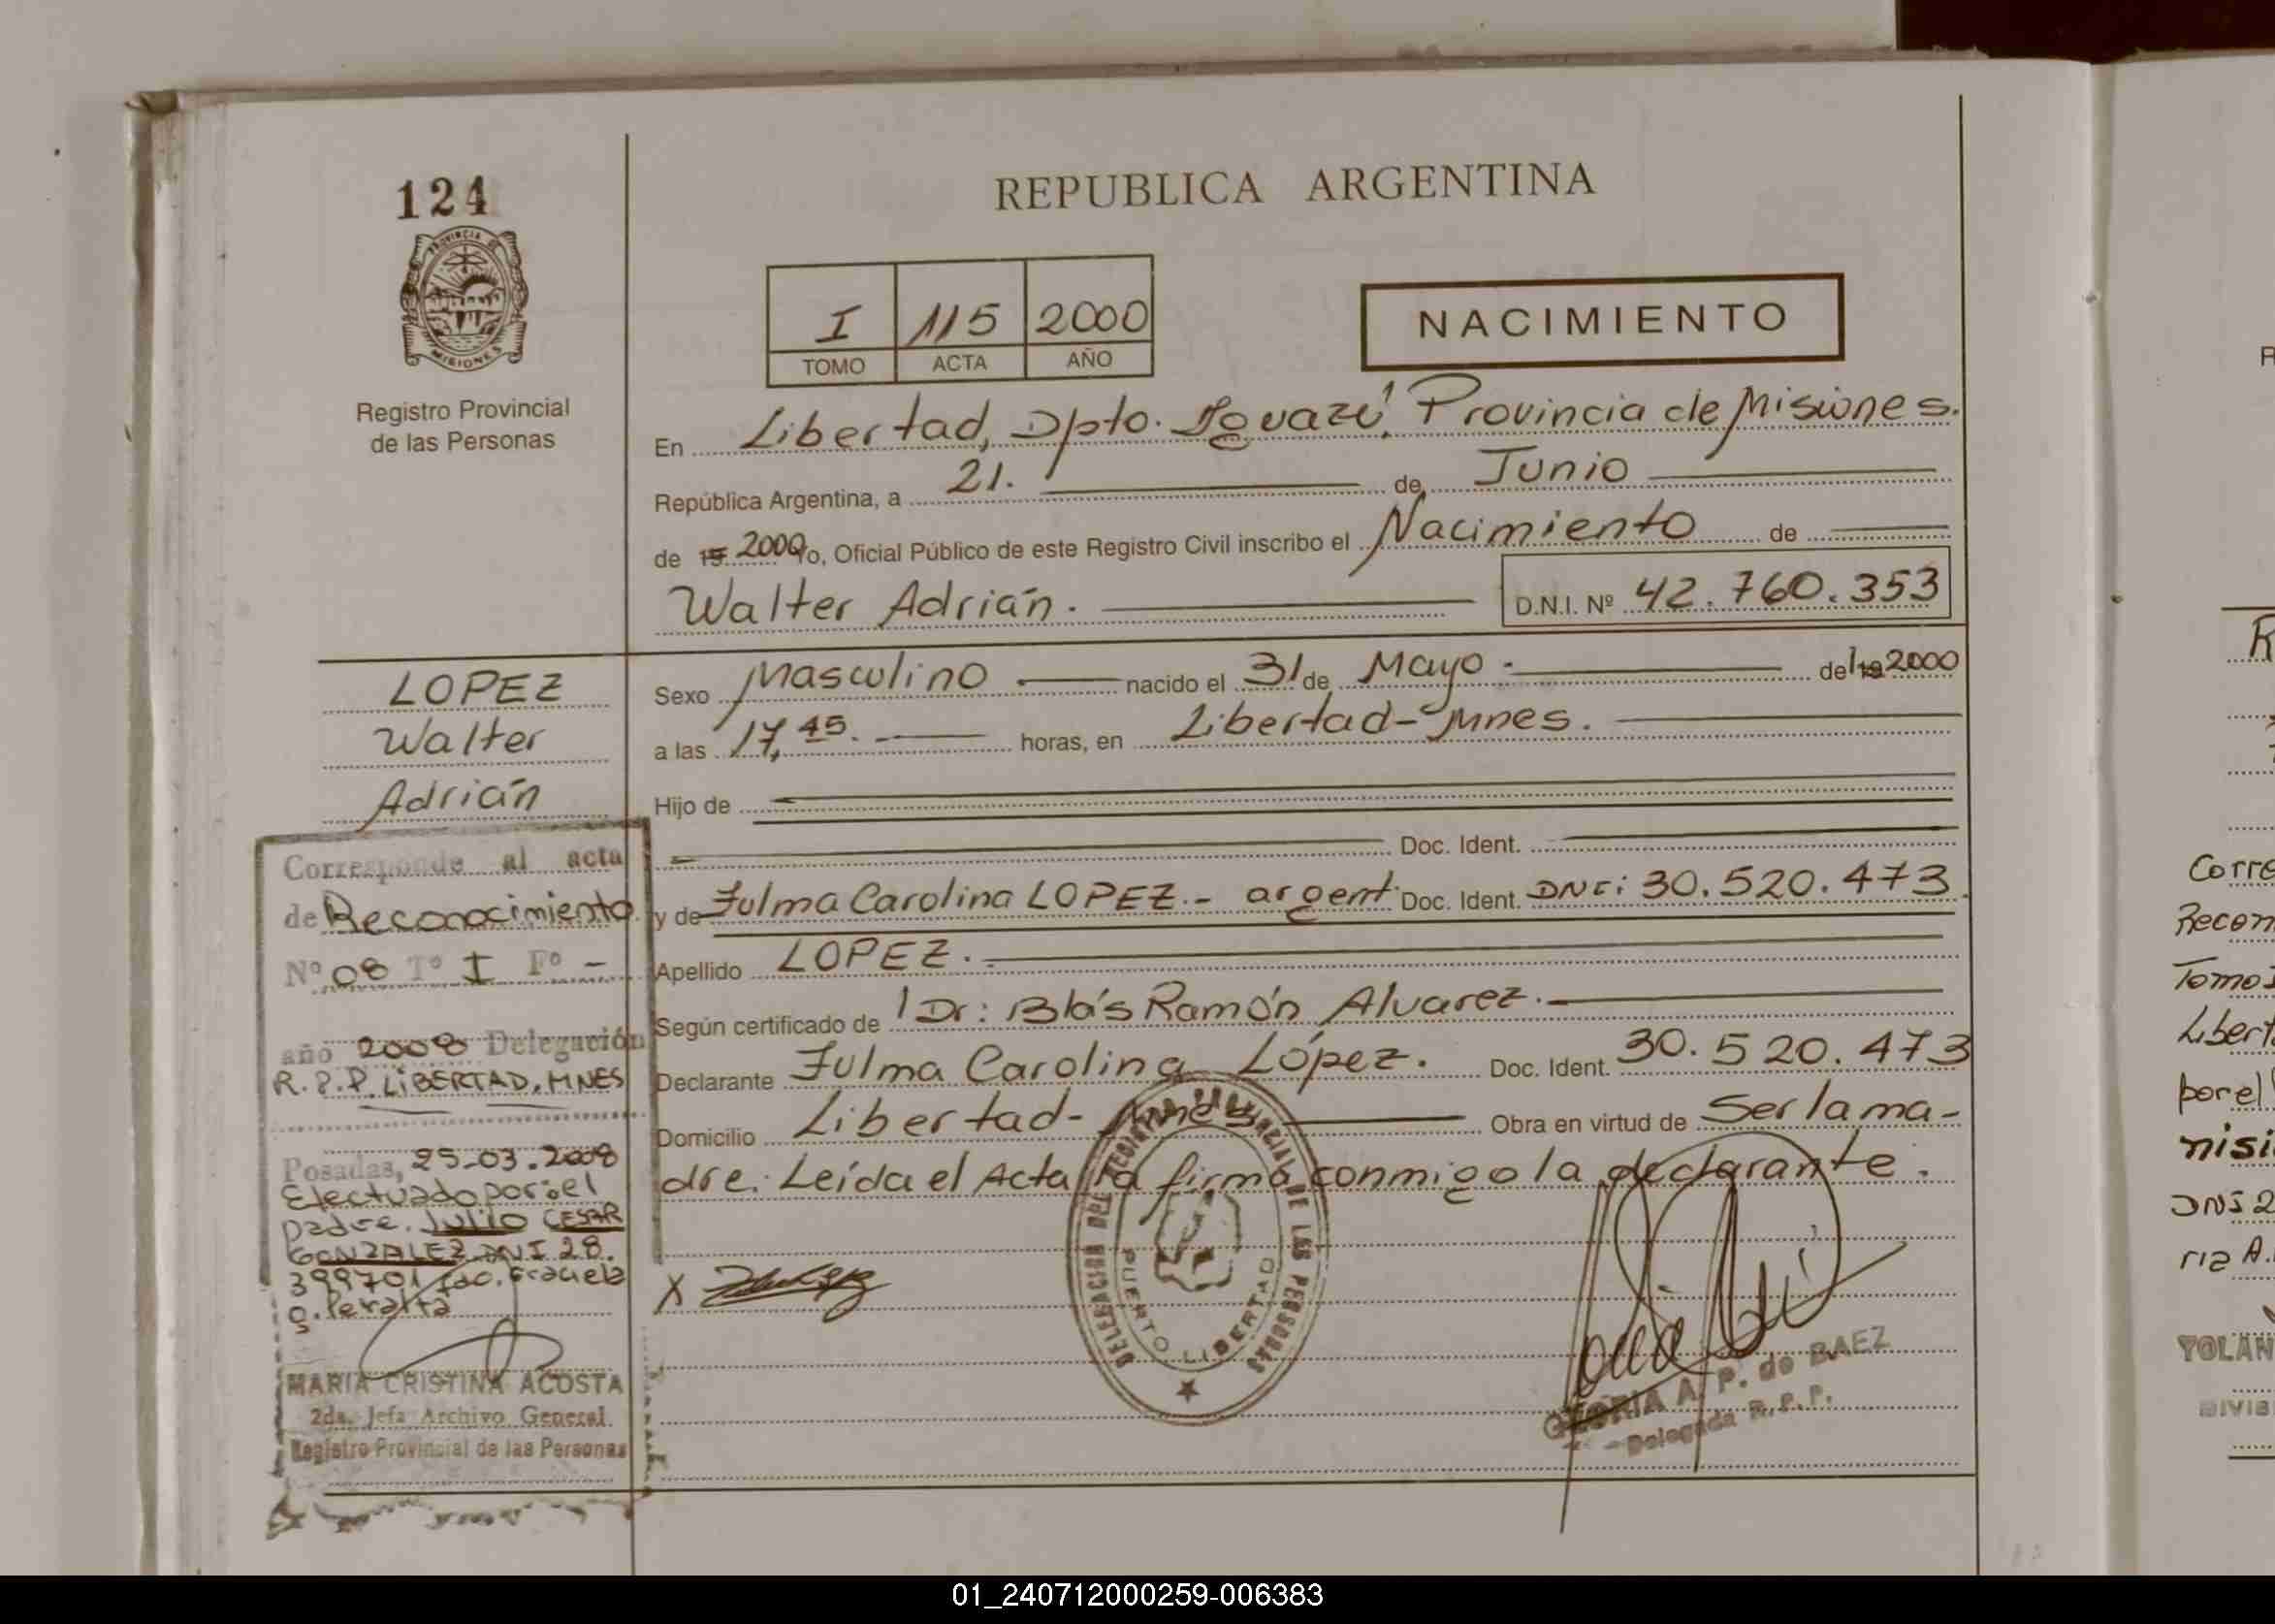 124
PROVINCIA DE
MISIONES
Registro Provincial
de las Personas
REPUBLICA ARGENTINA
I 115 2000
TOMO ACTA AÑO
NACIMIENTO
En Libertad, Dpto. Iguazú, Provincia de Misiones.
República Argentina, a 21. de Junio
de 19 2000 yo, Oficial Público de este Registro Civil inscribo el Nacimiento de
Walter Adrián. D.N.I. Nº 42.760.353
LOPEZ
Walter
Adrián
Sexo Masculino nacido el 31 de Mayo - del 19 2000
a las 17,45. horas, en Libertad-Mnes.
Hijo de
Doc. Ident.
y de Zulma Carolina LOPEZ.- argent. Doc. Ident. DNI: 30.520.473
Apellido LOPEZ.-
Según certificado de Dr: Blás Ramón Alvarez.
Declarante Zulma Carolina López. Doc. Ident. 30.520.473
Domicilio Libertad- Mnes Obra en virtud de Ser la ma-
dre. Leída el Acta la firma conmigo la declarante.
Corresponde al acta
de Reconocimiento
Nº 08 Tº I Fº -
año 2008 Delegación
R.P.P. LIBERTAD, MNES
Posadas, 25-03.2008
Efectuado por: el
padre. Julio CESAR
GONZALEZ DNI 28.
399701 fdo. Graciela
G. Peralta
MARIA CRISTINA ACOSTA
2da. Jefa Archivo General
Registro Provincial de las Personas
X
DELEGACION DEL REGISTRO PROVINCIAL DE LAS PERSONAS
PUERTO LIBERTAD
GLORIA A. P. de BAEZ
Delegada R.P.P.
R
Corre
Recon
Tomo I
Libert
por el
nisi
DNI 2
ria A.
YOLAN
DIVIS
01_240712000259-006383